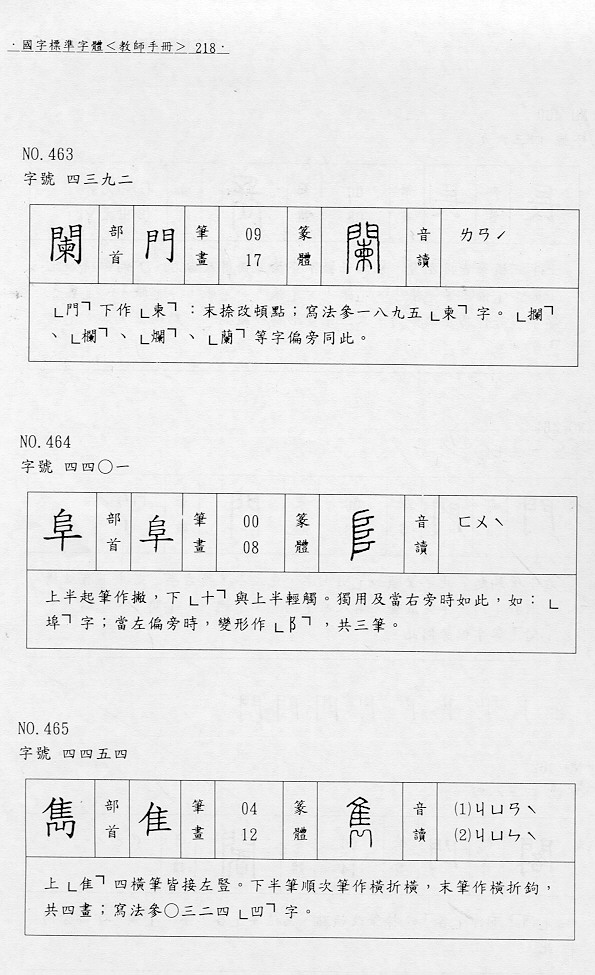 ·國字標準字體<教師手冊> 218·
NO. 463
字號 四三九二
闌 部首 門 筆畫 09 17 篆體 闌 音讀 ㄌㄢˊ
﹂門﹁下作﹂柬﹁：末捺改頓點；寫法參一八九五﹂柬﹁字。﹂攔﹁
、﹂欄﹁、﹂爛﹁、﹂蘭﹁等字偏旁同此。
NO. 464
字號 四四〇一
阜 部首 阜 筆畫 00 08 篆體 𨸏 音讀 ㄈㄨˋ
上半起筆作撇，下﹂十﹁與上半輕觸。獨用及當右旁時如此，如：﹂
埠﹁字；當左偏旁時，變形作﹂阝﹁，共三筆。
NO. 465
字號 四四五四
雋 部首 隹 筆畫 04 12 篆體 雋 音讀 ⑴ㄐㄩㄢˋ
⑵ㄐㄩㄣˋ
上﹂隹﹁四橫筆皆接左豎。下半筆順次筆作橫折橫，末筆作橫折鉤，
共四畫；寫法參〇三二四﹂凹﹁字。